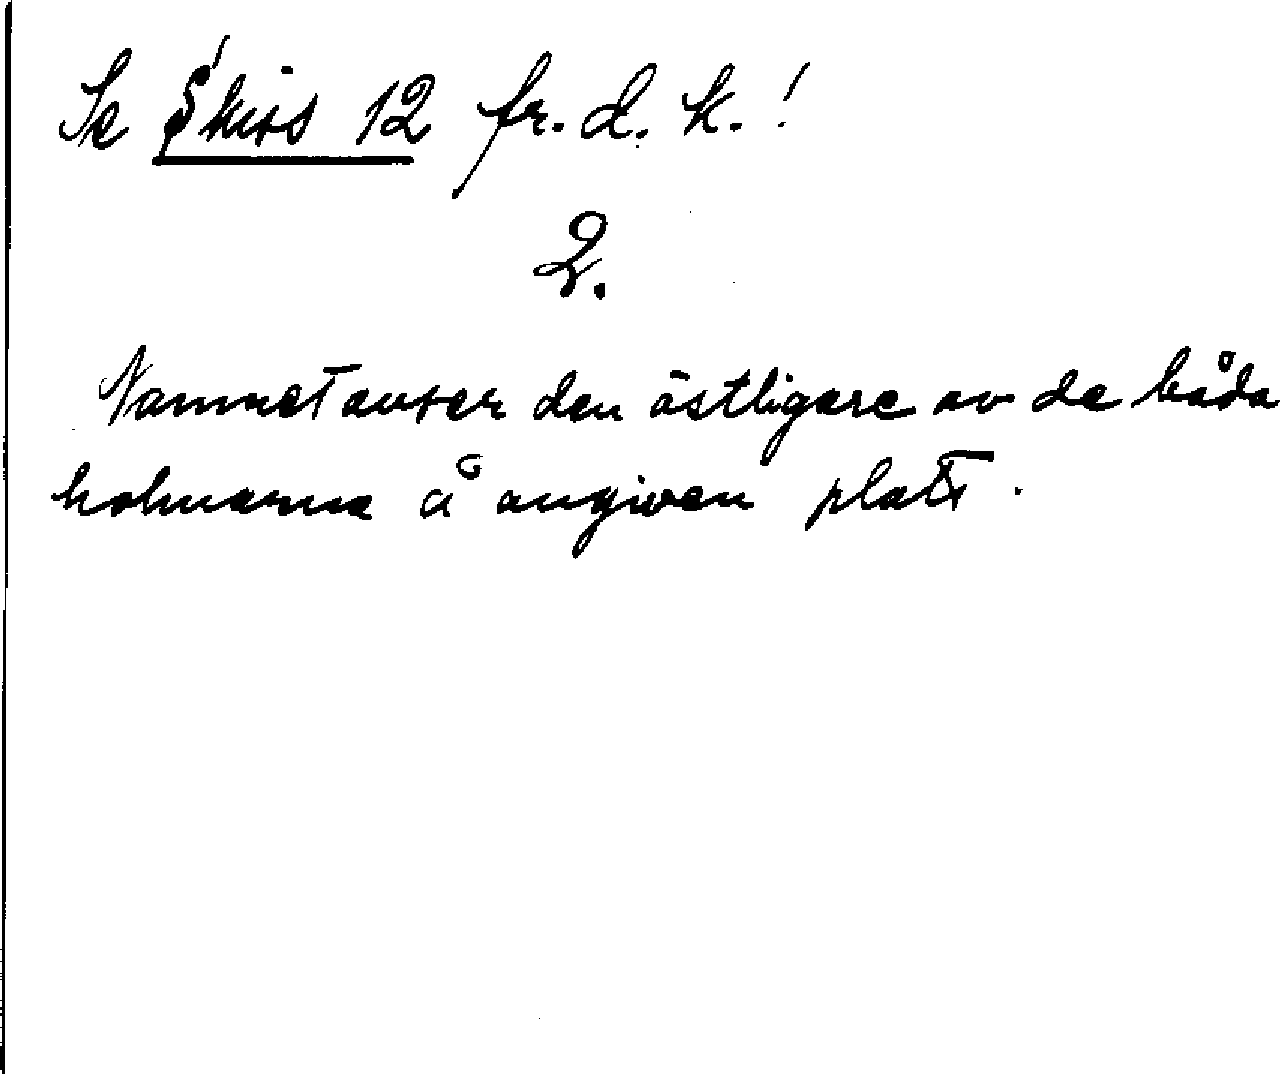 Se Skiss 12 fr. d. k.!
2.
Namnet avser den östligare av de båda
holmarna å angiven plats.